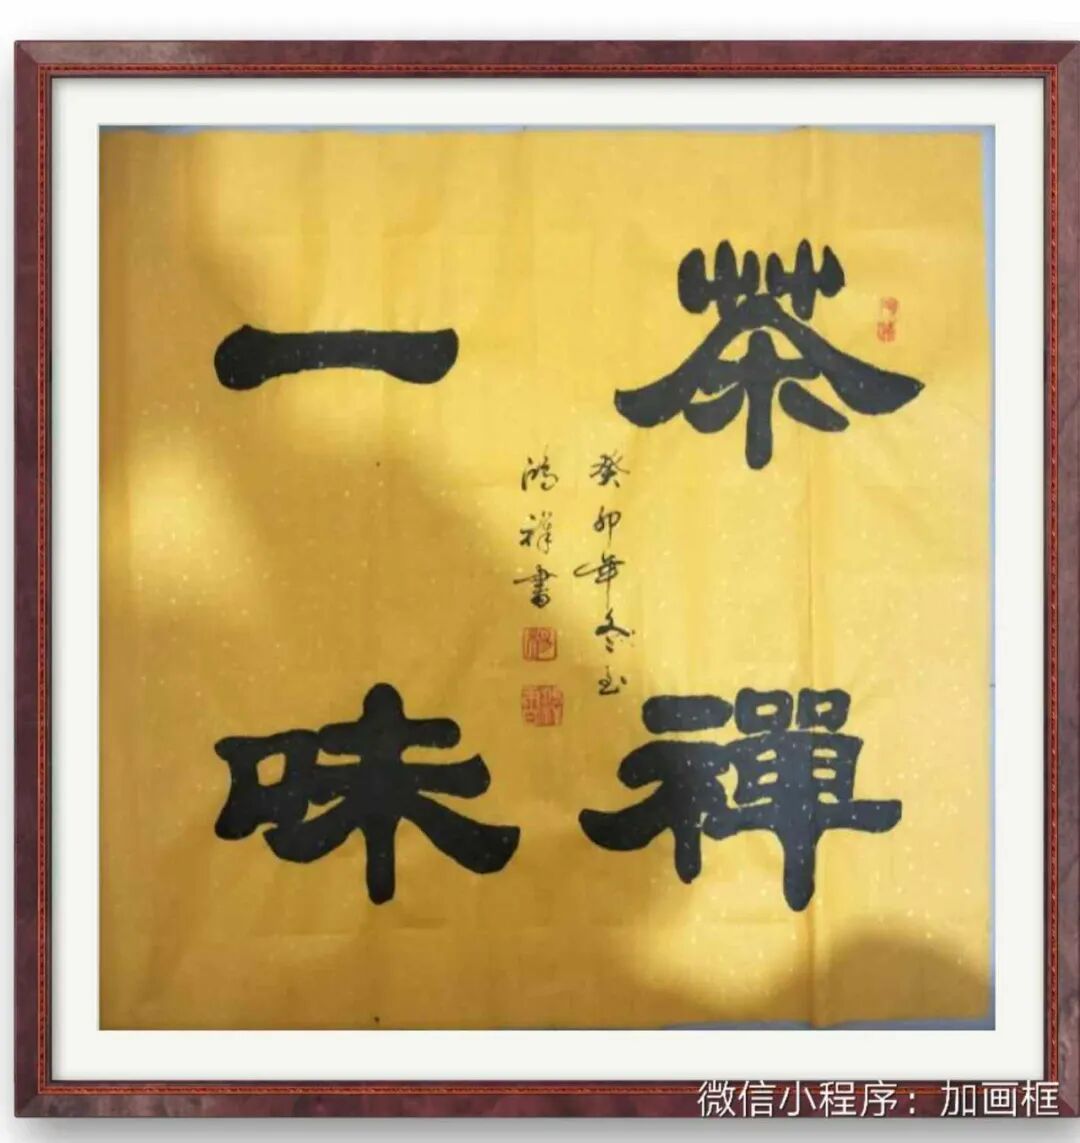 茶禪
一味
癸卯年冬至
鴻祥書
微信小程序：加画框